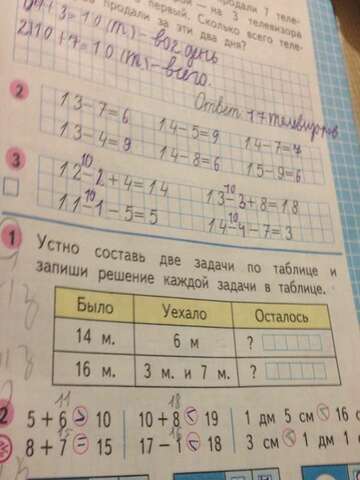 продали 7 теле-
— на 3 телевизора
первый. Сколько всего теле-
продали за эти два дня?
7+3=10 (т)- во 2 день
2)10+7=10 (т)-всего.
Ответ 17 телевизоров
2
13-7=6 14-5=9 14-7=7
13-4=9 14-8=6 15-9=6
3
10 10
12-2+4=14 13-3+8=18
10 10
11-1-5=5 14-4-7=3
1 Устно составь две задачи по таблице и
запиши решение каждой задачи в таблице.
Было Уехало Осталось
14 м. 6 м ?
16 м. 3 м. и 7 м. ?
11 18
2 5 + 6 > 10 10 + 8 < 19 1 дм 5 см < 16 с
15 16
8 + 7 = 15 17 − 1 < 18 3 см < 1 дм 1 с